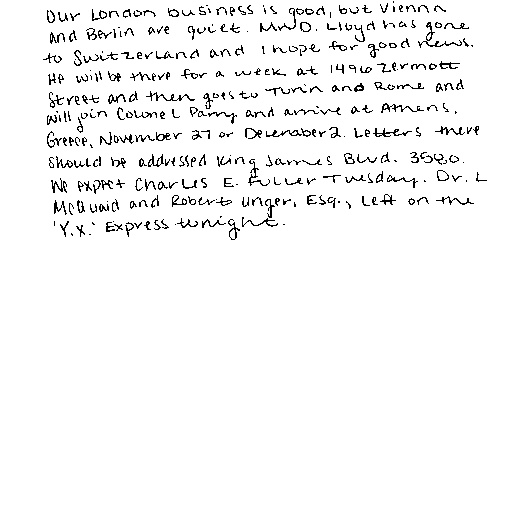 Our London business is good, but Vienna
and Berlin are quiet. Mr. D. Lloyd has gone
to Switzerland and I hope for good news.
He will be there for a week at 1496 Zermott
Street and then goes to Turin and Rome and
will join Colonel Parry and arrive at Athens,
Greece, November 27 or December 2. Letters there
should be addressed King James Blvd. 3580.
We expect Charles E. Fuller Tuesday. Dr. L
McQuaid and Robert Unger, Esq., left on the
'Y.X.' Express tonight.